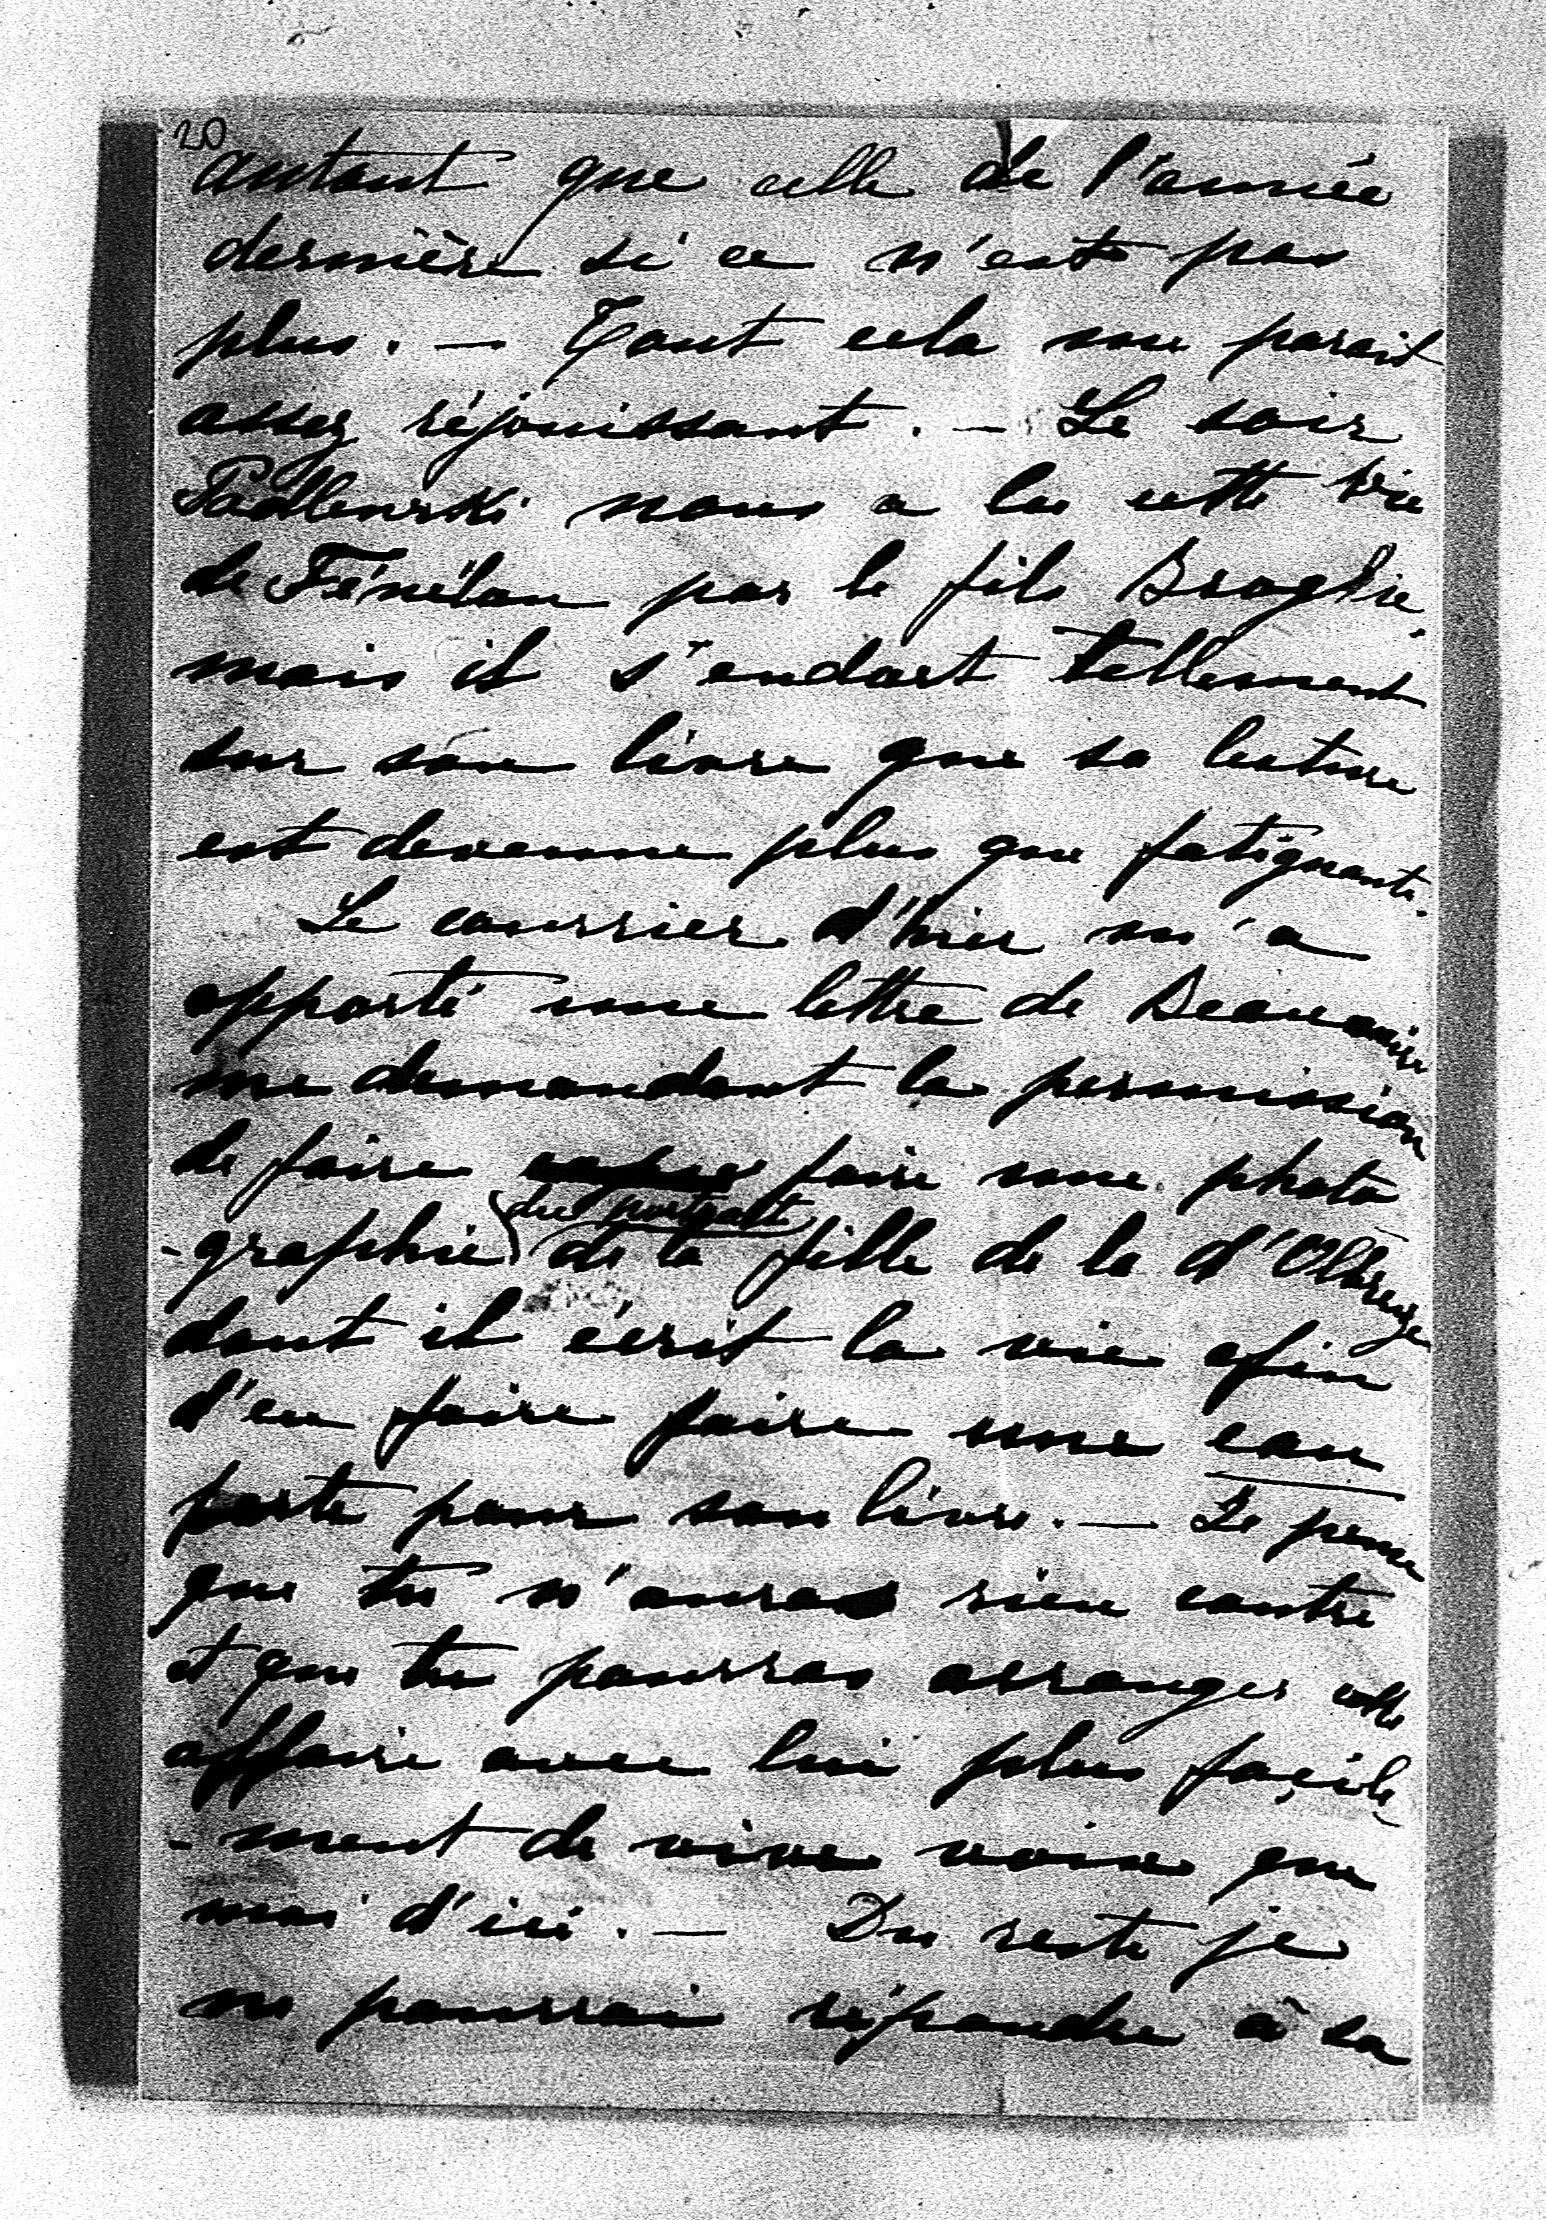 20
autant que celle de l'année
dernière si ce n'est pas
plus. — Tout cela me parait
assez réjouissant. — Le soir
Podlewski nous a lu cette vie
de Fénélon par le fils Broglie,
mais il s'endort tellement
sur son livre que sa lecture
est devenue plus que fatiguante.
Le courrier d'hier m'a
apporté une lettre de Beaucaire
me demandant la permission
de faire faire une photo
-graphie du portrait de la fille de la d'Olbreuze
dont il écrit la vie afin
d'en faire faire une eau
forte pour son livre. — Je pense
que tu n'auras rien contre
et que tu pourras arranger cette
affaire avec lui plus façile
-ment de vive voix que
moi d'ici. — Du reste je
ne pourrai répondre à sa